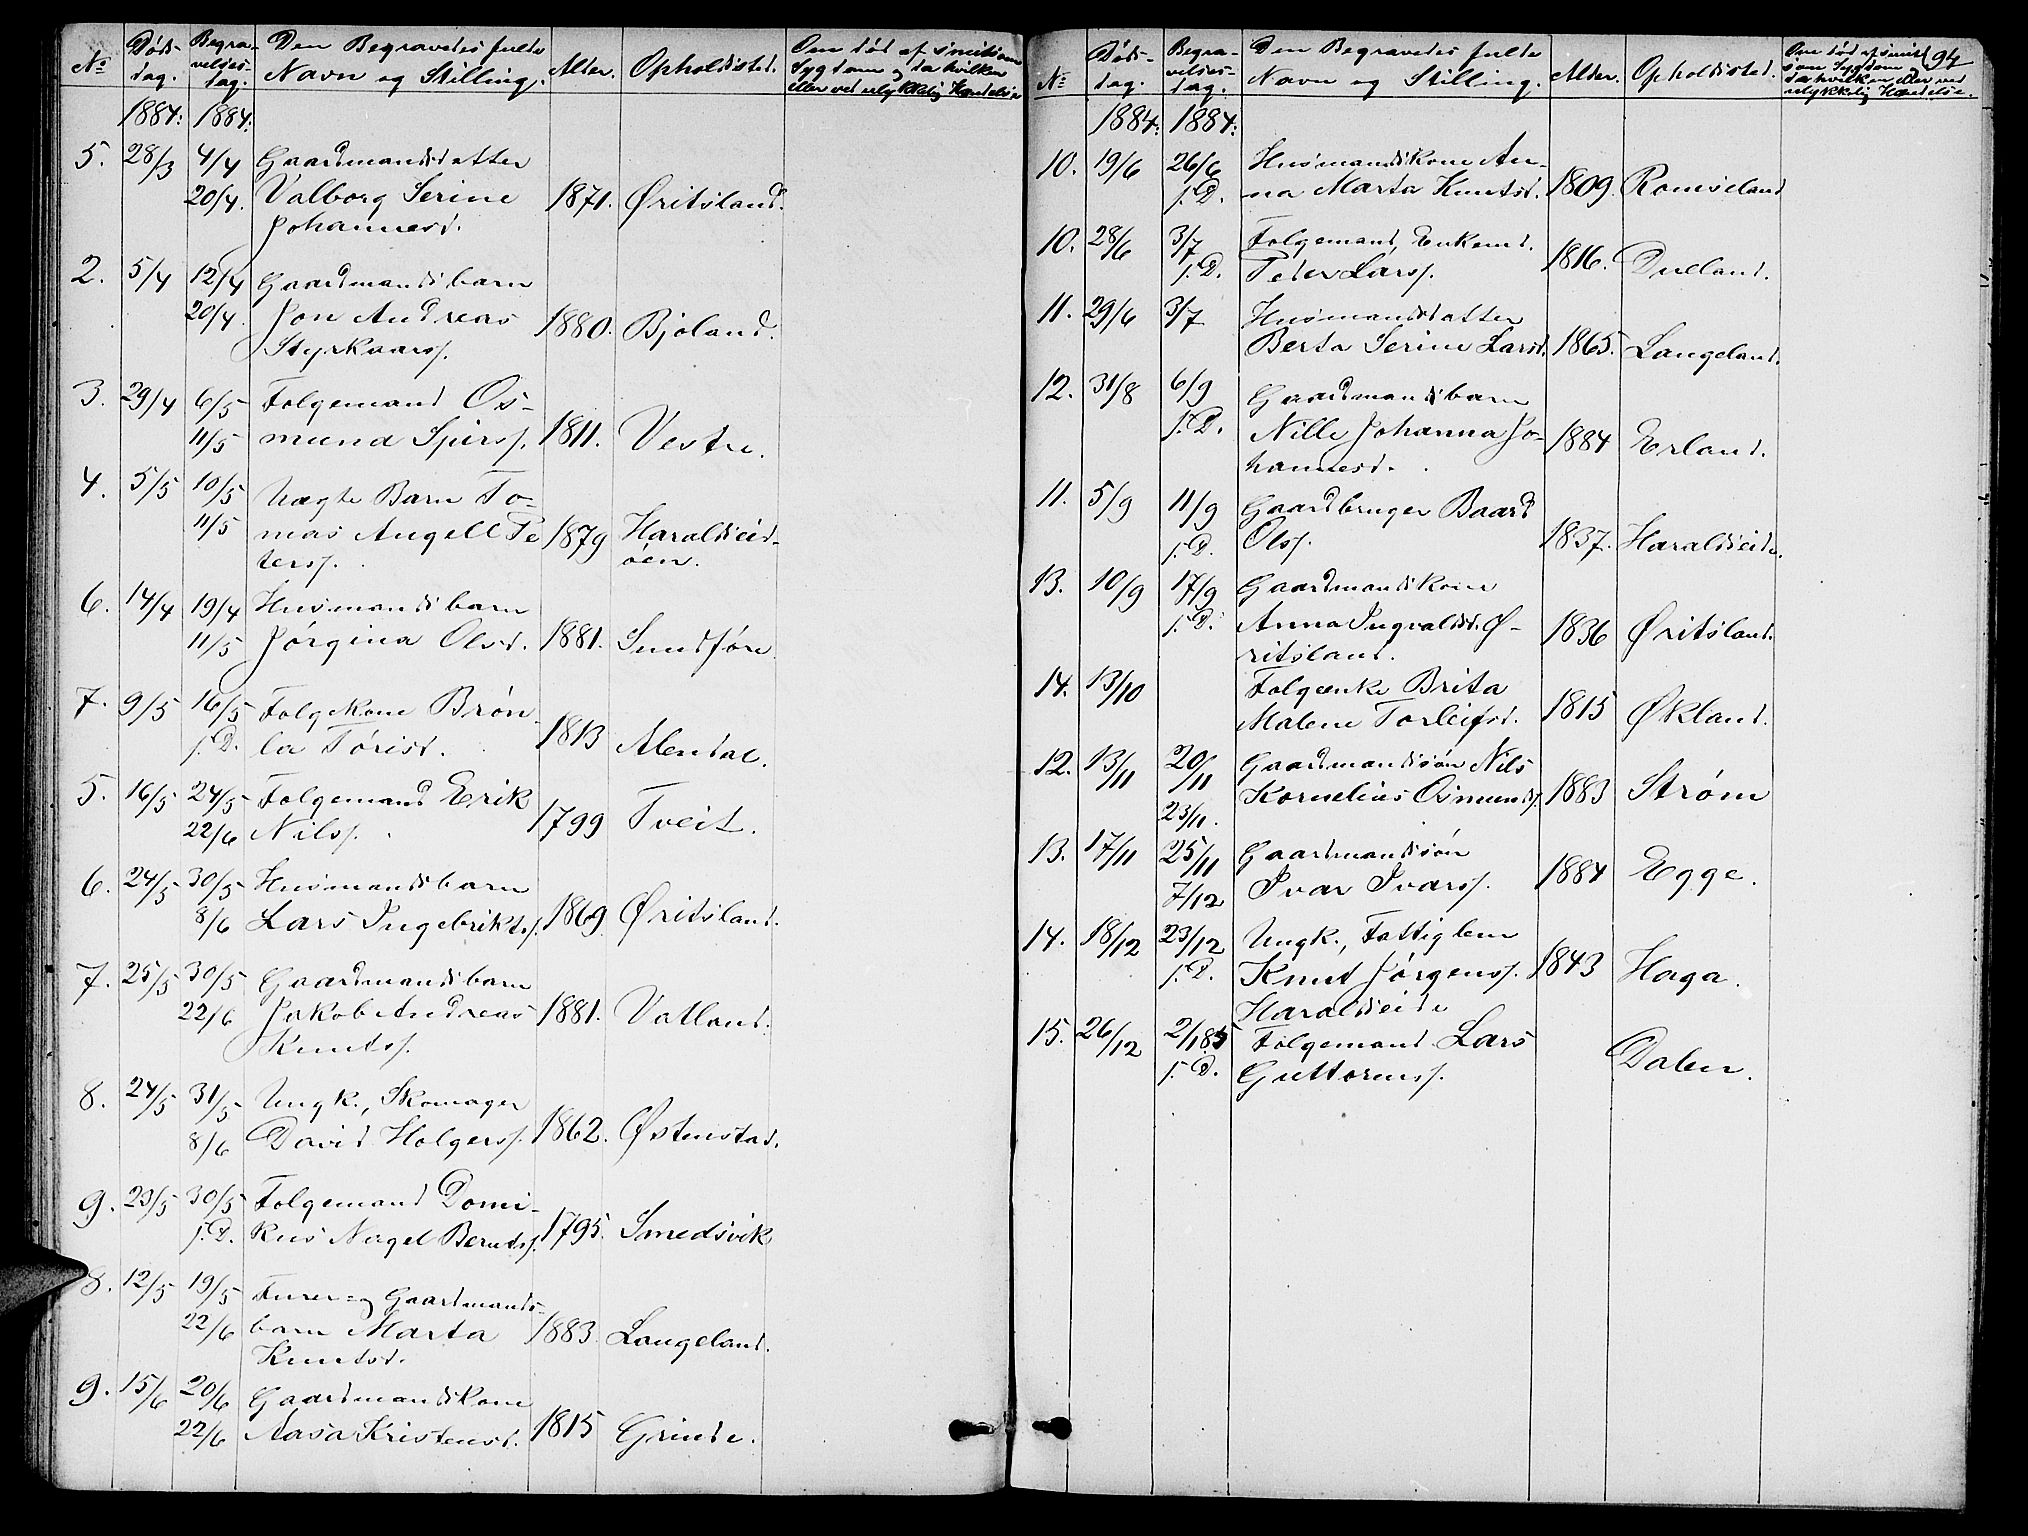 No
Døds-
dag.
Begra-
velses-
dag.
Den Begravedes fulde
Navn og Stilling.
Alder.
Opholdssted.
Om død af smitsom
Sygdom og da hvilken
eller ved ulykkelig Hændelse
1884: 1884:
5. 28/3 4/4 Gaardmandsdatter
20/4. Valborg Serine 1871. Øritsland.
Johannesd.
2. 5/4 12/4 Gaardmandsbarn
20/4. Jon Andreas 1880. Bjoland.
Styrkaars.
3. 29/4 6/5 Folgemand Os-
11/5 mund Spirs. 1811. Vestre.
4. 5/5 10/5 Uægte Barn To-
11/5 mas Angell Pe 1879 Haraldseid-
ters. øen.
6. 14/4 19/4 Husmandsbarn
11/5 Jørgina Olsd. 1881. Sundføre.
7. 9/5 16/5 Folgekone Brøn-
s. D. la Tørisd. 1813 Alendal.
5. 16/5 24/5 Folgemand Erik
22/6 Nils. 1799 Tveit.
6. 24/5 30/5 Husmandsbarn
8/6 Lars Ingebrikts. 1869 Øritsland.
7. 25/5 30/5 Gaardmandsbarn
22/6 Jakob Andreas 1881. Vatland.
Knuts.
8. 24/5 31/5 Ungk., Skomager
8/6 David Holgers. 1862. Østenstad.
9. 23/5 30/5 Folgemand Domi-
s. D. kus Nagel Bernts. 1795. Smedsvik
8. 12/5 19/5 Furer- og Gaardmands-
22/6 barn Marta 1883. Langeland.
Knutsd.
9. 15/6 20/6 Gaardmandskone
22/6 Aasa Kristensd. 1815 Grinde.
94
No
Døds-
dag.
Begra-
velses-
dag.
Den Begravedes fulde
Navn og Stilling.
Alder.
Opholdssted.
Om død af smit
som Sygdom og
da hvilken eller ved
ulykkelig Hændelse.
1884: 1884:
10. 19/6 26/6 Husmandskone An-
s. D. na Marta Knutsd. 1809. Romseland
10. 28/6 3/7 Folgemand, Enkemd.
s. D. Peder Lars. 1816. Dueland.
11. 29/6 3/7 Husmandsdatter
Berta Serine Larsd. 1865. Langeland.
12. 31/8 6/9 Gaardmandsbarn
s. D. Nille Johanna Jo- 1884 Erland.
hannesd.
11. 5/9 11/9 Gaardbruger Baard
s. D. Ols. 1837. Haraldseide.
13. 10/9 17/9 Gaardmandskone
s. D. Anna Ingvaldsd. Ø- 1836 Øritsland.
ritsland.
14. 13/10 Folgeenke Brita
Malene Torleifsd. 1815 Økland.
12. 13/11 20/11 Gaardmandssøn Nils
23/11. Kornelius Osmunds. 1883 Strøm
13. 17/11 25/11 Gaardmandssøn
7/12 Ivar Ivars. 1884 Egge.
14. 18/12 23/12 Ungk., Fattiglem
s. D. Knut Jørgens. 1843 Haga.
Haraldseide
15. 26/12 2/1 85 Folgemand Lars
s. D. Guttorms. Dalen.